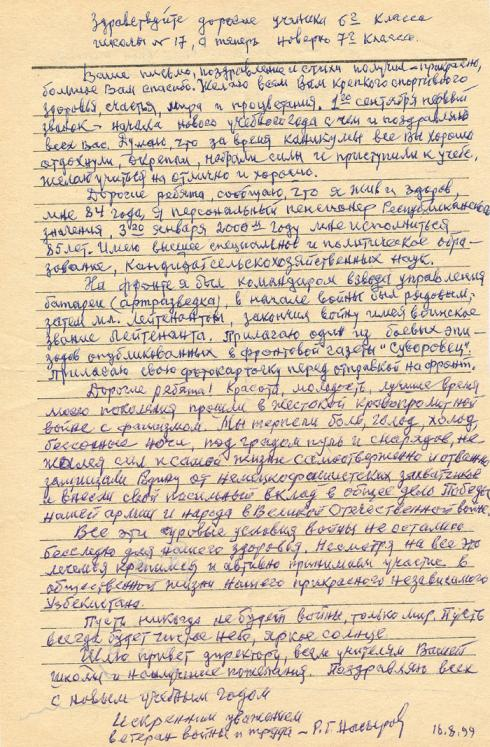 Здравствуйте дорогие ученики 6го класса
школы № 17, а теперь наверно 7го класса.
Ваше письмо, поздравление и стихи получил – прекрасно,
большое Вам спасибо. Желаю всем Вам крепкого спортивного
здоровья, счастья, мира и процветания. 1го сентября первый
звонок – начала нового учебного года с чем и поздравляю
всех Вас. Думаю, что за время каникулы все Вы хорошо
отдохнули, окрепли, набрали силы и приступили к учебе,
желаю учиться на отлично и хорошо.
Дорогие ребята, сообщаю, что я жив и здоров,
мне 84 года, я персональный пенсионер Республиканского
значения, 3го января 2000го году мне исполниться
85 лет. Имею высшее специальное и политическое обра-
зование, кандидат сельскохозяйственных наук.
На фронте я был командиром взвода управления
батареи (артразведка), в начале войны был рядовым,
затем мл. лейтенантом, закончил войну имея воинское
звание лейтенанта. Прилагаю один из боевых эпи-
зодов опубликованных в фронтовой газеты "Суворовец".
Прилагаю свою фотокарточку перед отправкой на фронт.
Дорогие ребята! Красота, молодость, лучшие время
моего поколения прошли в жестокой кровопролитной
войне с фашизмом. Мы терпели боли, голод, холод,
бессонные ночи, под градом пуль и снарядов, не
жалея сил и самой жизни самоотверженно и отважно
защищали Родину от немецкофашистских захватчиков
и внесли свой посильный вклад в общее дело Победы
нашей армии и народа в Великой Отечественной войне.
Все эти суровые условия войны не остались
бесследно для нашего здоровья. Несмотря на все это
лечемся крепимся и активно принимаем участие в
общественной жизни нашего прекрасного независимого
Узбекистана.
Пусть никогда не будет войны, только мир. Пусть
всегда будет чистое небо, яркое солнце.
Шлю привет директору, всем учителям Вашей
школы и наилучшие пожелания. Поздравляю всех
с новым учебным годом
Искренним уважением
ветеран войны и труда – Р.Г. Насыров 16.8.99